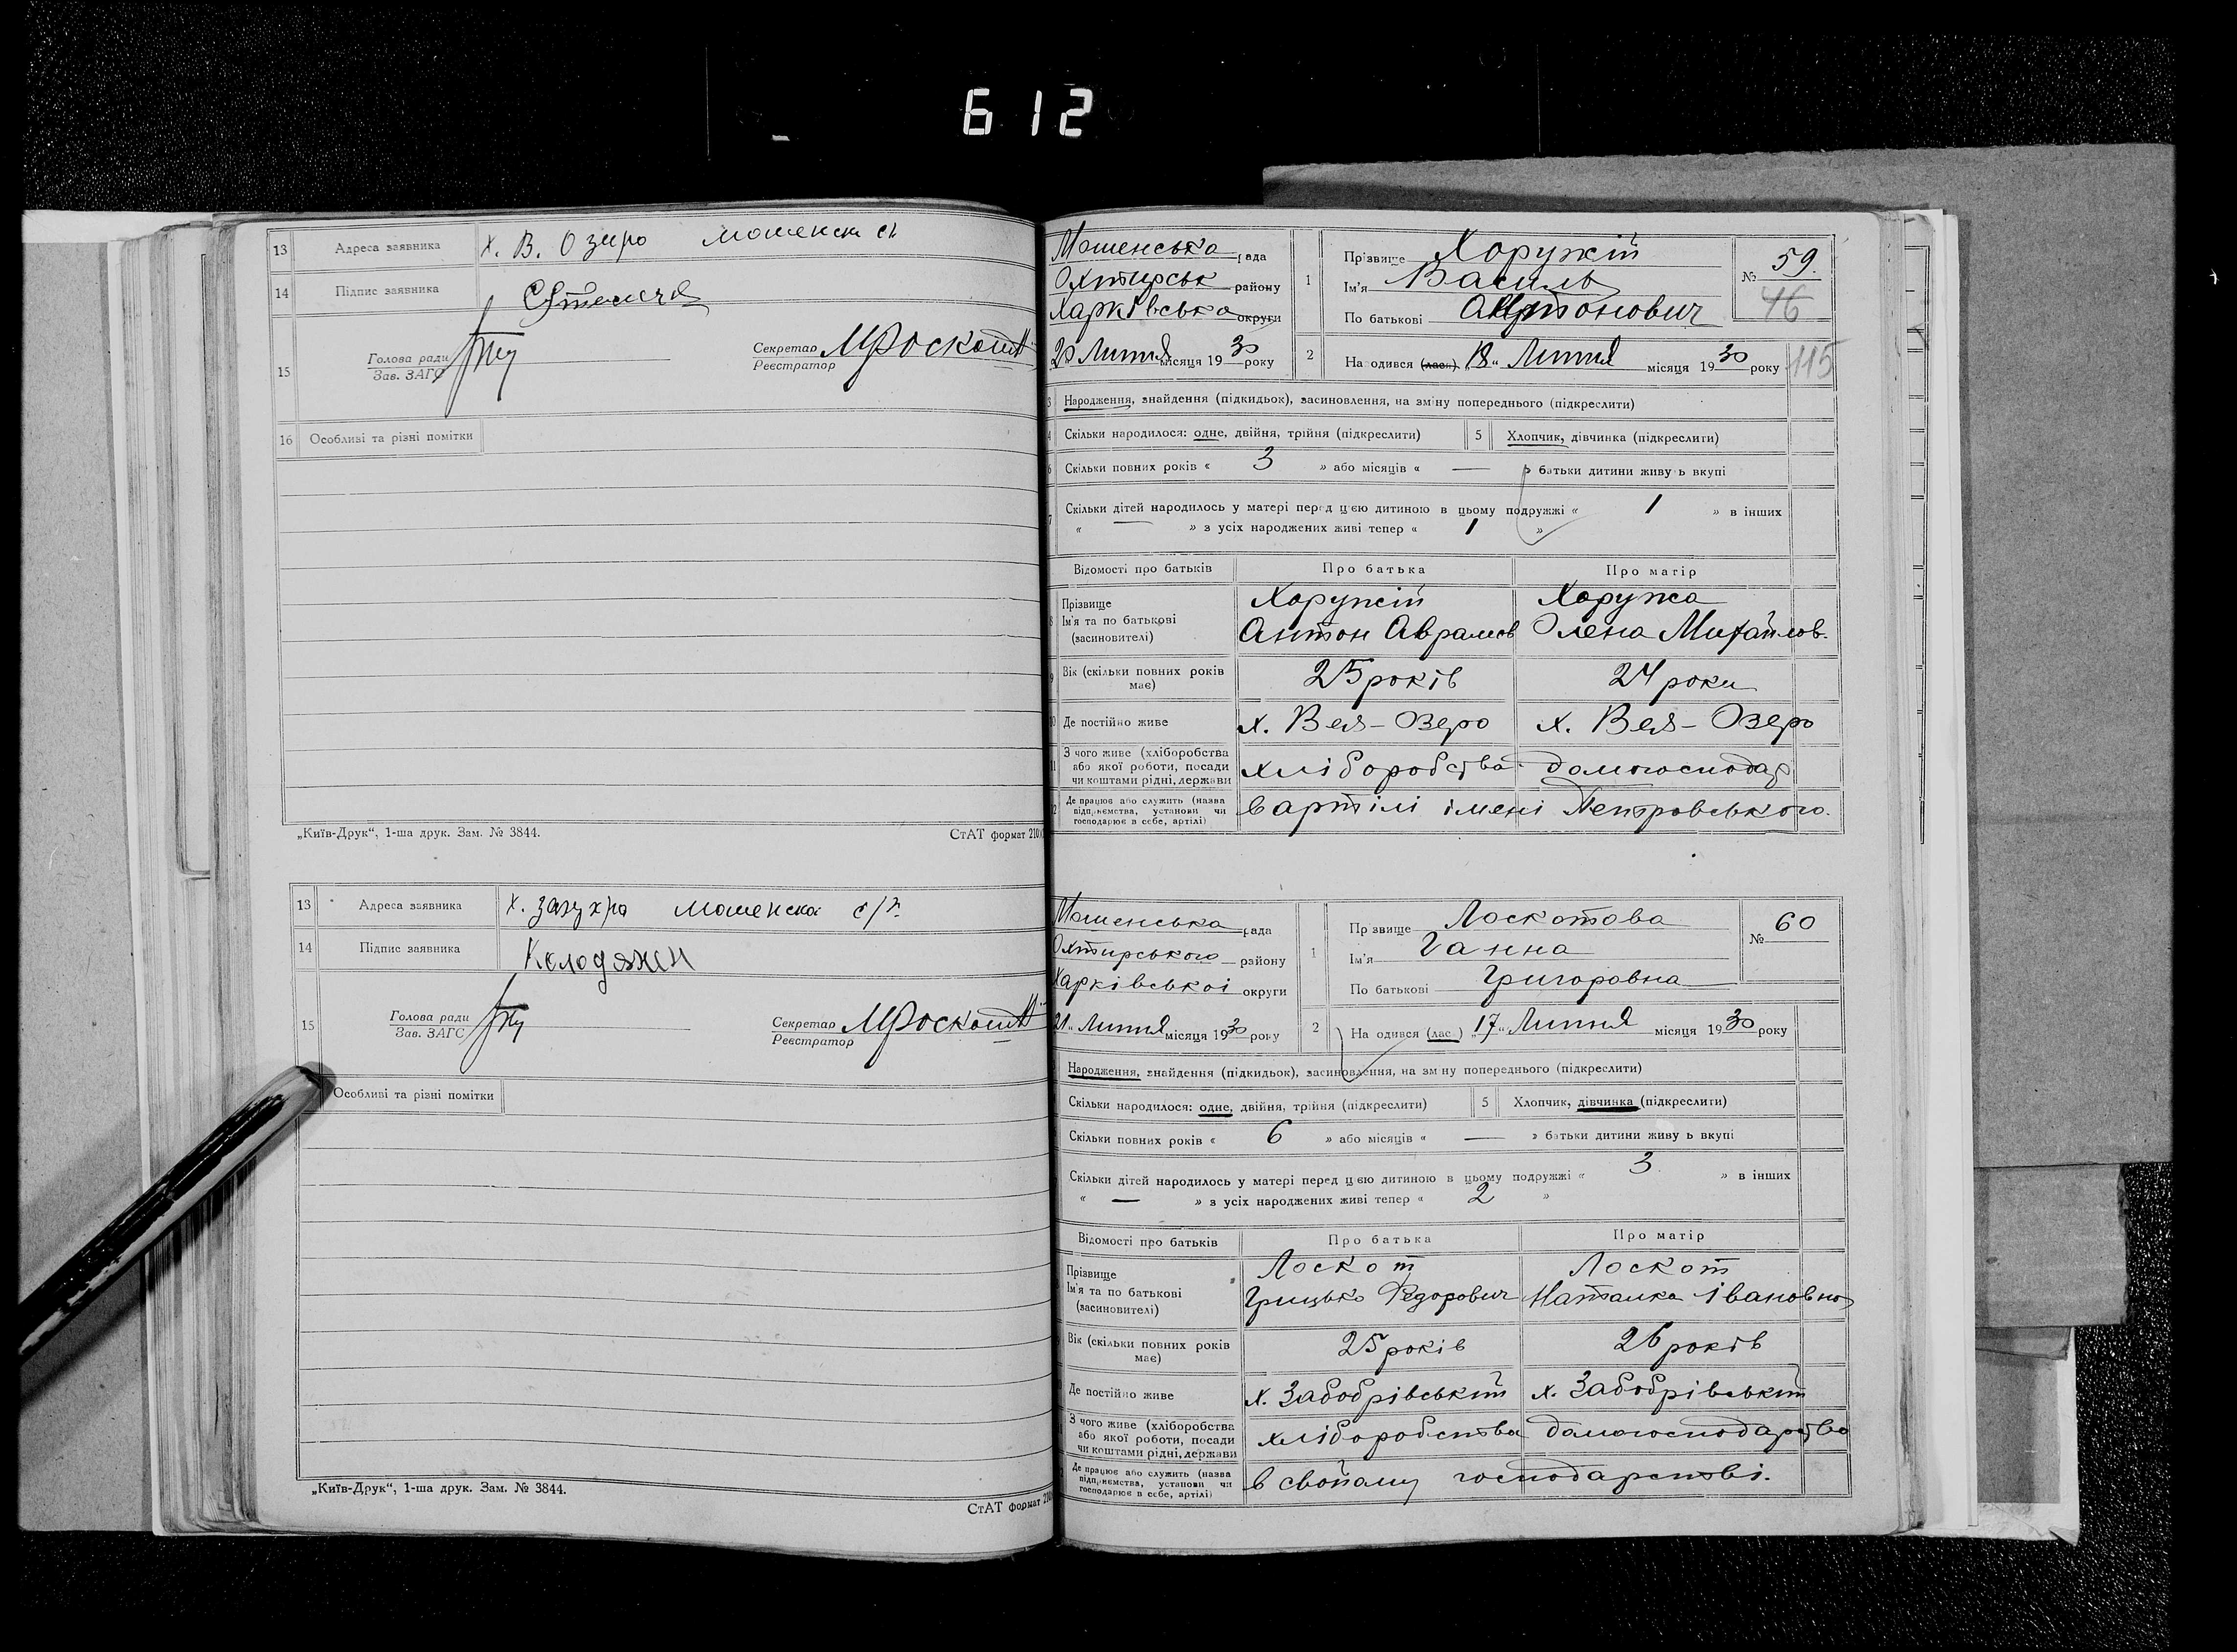 612
13 Адреса заявника х. В. Озиро
14 Підпис заявника
15 Голова ради Зав. ЗАГС Секретар Реєстратор МЛоскот
16 Особливі та різні помітки
„Київ-Друк“, 1-ша друк. Зам. № 3844. СтАТ формат 210
13 Адреса заявника х.
14 Підпис заявника
15 Голова ради Зав. ЗАГС Секретар Реєстратор МЛоскот
Особливі та різні помітки
„Київ-Друк“, 1-ша друк. Зам. № 3844.
СтАТ формат 210
Мошенська рада
Охтирськ району
Харківська округи
20 Липня місяця 1930 року
1 Прізвище Хоружій
Ім'я Василь
По батькові Антонович
№ 59.
46
2 На одився (лася) „18“ Липня місяця 1930 року 115
3 Народження, знайдення (підкидьок), засиновлення, на зміну попереднього (підкреслити)
4 Скільки народилося: одне, двійня, трійня (підкреслити) 5 Хлопчик, дівчинка (підкреслити)
6 Скільки повних років « 3 » або місяців « — » батьки дитини живу ь вкупі
7 Скільки дітей народилось у матері перед цією дитиною в цьому подружжі « 1 » в інших
« — » з усіх народжених живі тепер « 1 »
Відомості про батьків Про батька Про матір
8 Прізвище Хоружій Хоружа
Ім'я та по батькові Антон Аврамов Олена Михайлов.
(засиновителі)
9 Вік (скільки повних років має) 25 років 24 роки
10 Де постійно живе х. Веля-Озеро х. Веля-Озеро
11 З чого живе (хліборобства
або якої роботи, посади
чи коштами рідні, держави хліборобства домогосподар
12 Де працює або служить (назва
підприємства, установи чи
господарює в себе, артілі) в артілі імені Петровського.
Мошенська рада
Охтирського району
Харківської округи
21 „ Липня місяця 1930 року
1 Пр звище Лоскотова
Ім'я Ганна
По батькові Григоровна
№ 60
2 На одився (лас ) „17“ Липня місяця 1930 року
Народження, знайдення (підкидьок), засиновлення, на зм ну попереднього (підкреслити)
Скільки народилося: одне, двійня, трійня (підкреслити) 5 Хлопчик, дівчинка (підкреслити)
Скільки повних років « 6 » або місяців « — » батьки дитини живу ь вкупі
Скільки дітей народилось у матері перед цією дитиною в цьому подружжі « 3 » в інших
« — » з усіх народжених живі тепер « 2 »
Відомості про батьків Про батька Про матір
Прізвище Лоскот Лоскот
Ім'я та по батькові Грицько Федорович Наталка Івановна
(засиновителі)
Вік (скільки повних років має) 25 років 26 років
Де постійно живе х. Забобрівський х. Забобрівський
З чого живе (хліборобства
або якої роботи, посади
чи коштами рідні, держави хліборобства домогосподарство
Де працює або служить (назва
підприємства, установи чи
господарює в себе, артілі) в свойому господарстві.